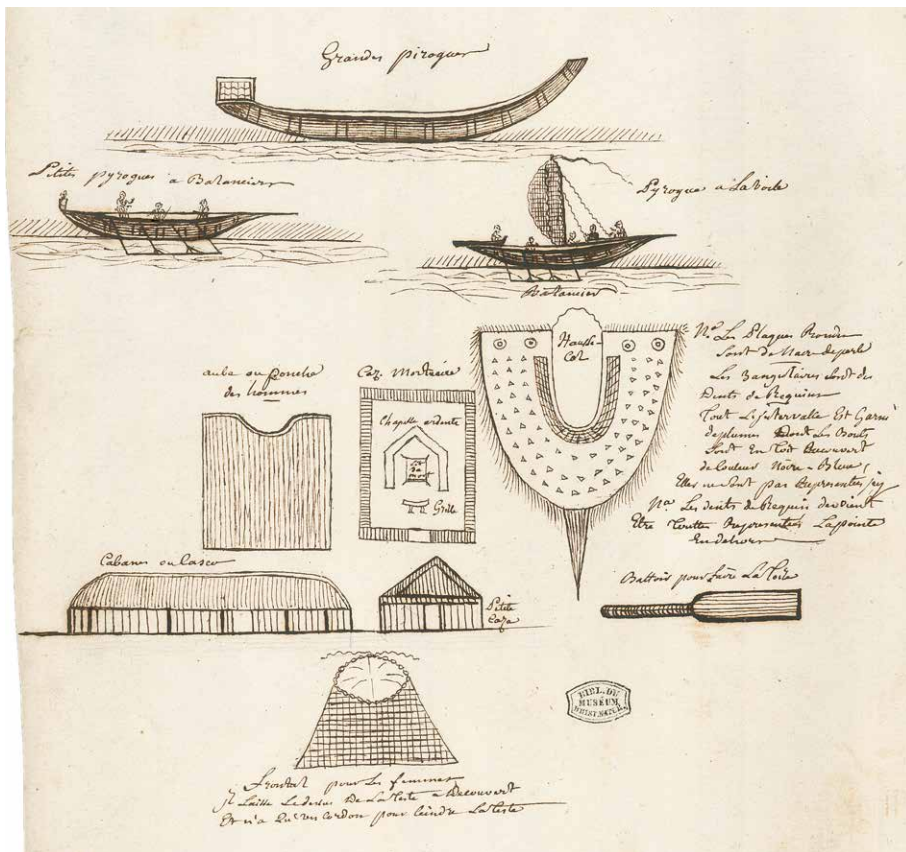 Grandes pirogues
Petites pyrogues a Balanciers
Pyrogue a La Voile
Balancier
aube ou Poncho
des hommes
Caz. Mortuaire
Chapelle ardente
Lit
du
mort
Grille
Hausse
Col
Nᵃ Les Plaques Rondes
Sont de Nacr de perle
Les Triangulaires Sont des
Dents de Requins
Tout L'intervalle Est Garni
de plumes Dont Les Bouts
Sont En Toit Recouvert
de Couleur Noire - Bleue,
Elles ne Sont pas Representés
Nᵃ Les dents de Requin devoient
Etre Toutes Representées La pointe
En dehors
Cabanes ou Cases
Petite
Caze
Battoir pour faire La Toile
BIBL. DU
MUSÉUM
D'HIST. NATUR.
Frontal pour Les femmes
il Laisse Le dessus De La Teste a Decouvert
Et n'a qu'un Cordon pour Ceindre La Teste